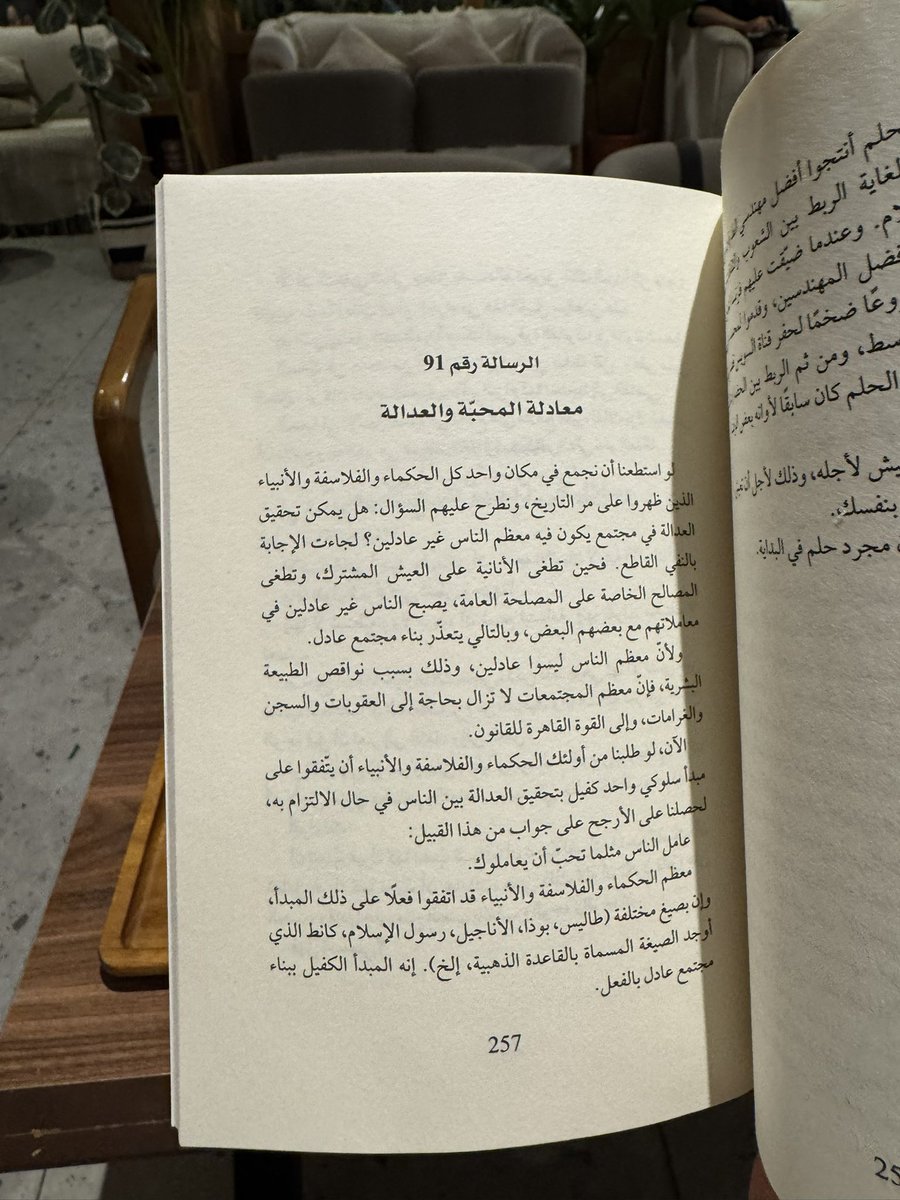 حلم أنتجوا أفضل مهندسي
لغاية الربط بين الشعوب
وعندما ضيّقت عليهم
فضل المهندسين، وقدموا
ضخمًا لحفر قناة السويس
ومن ثم الربط بين
الحلم كان سابقًا لأوانه بعض
يش لأجله، وذلك لأجل أن
بنفسك.
مجرد حلم في البداية.
25
الرسالة رقم 91
معادلة المحبّة والعدالة
لو استطعنا أن نجمع في مكان واحد كل الحكماء والفلاسفة والأنبياء
الذين ظهروا على مر التاريخ، ونطرح عليهم السؤال: هل يمكن تحقيق
العدالة في مجتمع يكون فيه معظم الناس غير عادلين؟ لجاءت الإجابة
بالنفي القاطع. فحين تطغى الأنانية على العيش المشترك، وتطغى
المصالح الخاصة على المصلحة العامة، يصبح الناس غير عادلين في
معاملاتهم مع بعضهم البعض، وبالتالي يتعذّر بناء مجتمع عادل.
ولأنّ معظم الناس ليسوا عادلين، وذلك بسبب نواقص الطبيعة
البشرية، فإنّ معظم المجتمعات لا تزال بحاجة إلى العقوبات والسجن
والغرامات، وإلى القوة القاهرة للقانون.
الآن، لو طلبنا من أولئك الحكماء والفلاسفة والأنبياء أن يتّفقوا على
مبدأ سلوكي واحد كفيل بتحقيق العدالة بين الناس في حال الالتزام به،
لحصلنا على الأرجح على جواب من هذا القبيل:
عامل الناس مثلما تحبّ أن يعاملوك.
معظم الحكماء والفلاسفة والأنبياء قد اتفقوا فعلًا على ذلك المبدأ،
وإن بصيغ مختلفة (طاليس، بوذا، الأناجيل، رسول الإسلام، كانط الذي
أوجد الصيغة المسماة بالقاعدة الذهبية، إلخ). إنه المبدأ الكفيل ببناء
مجتمع عادل بالفعل.
257